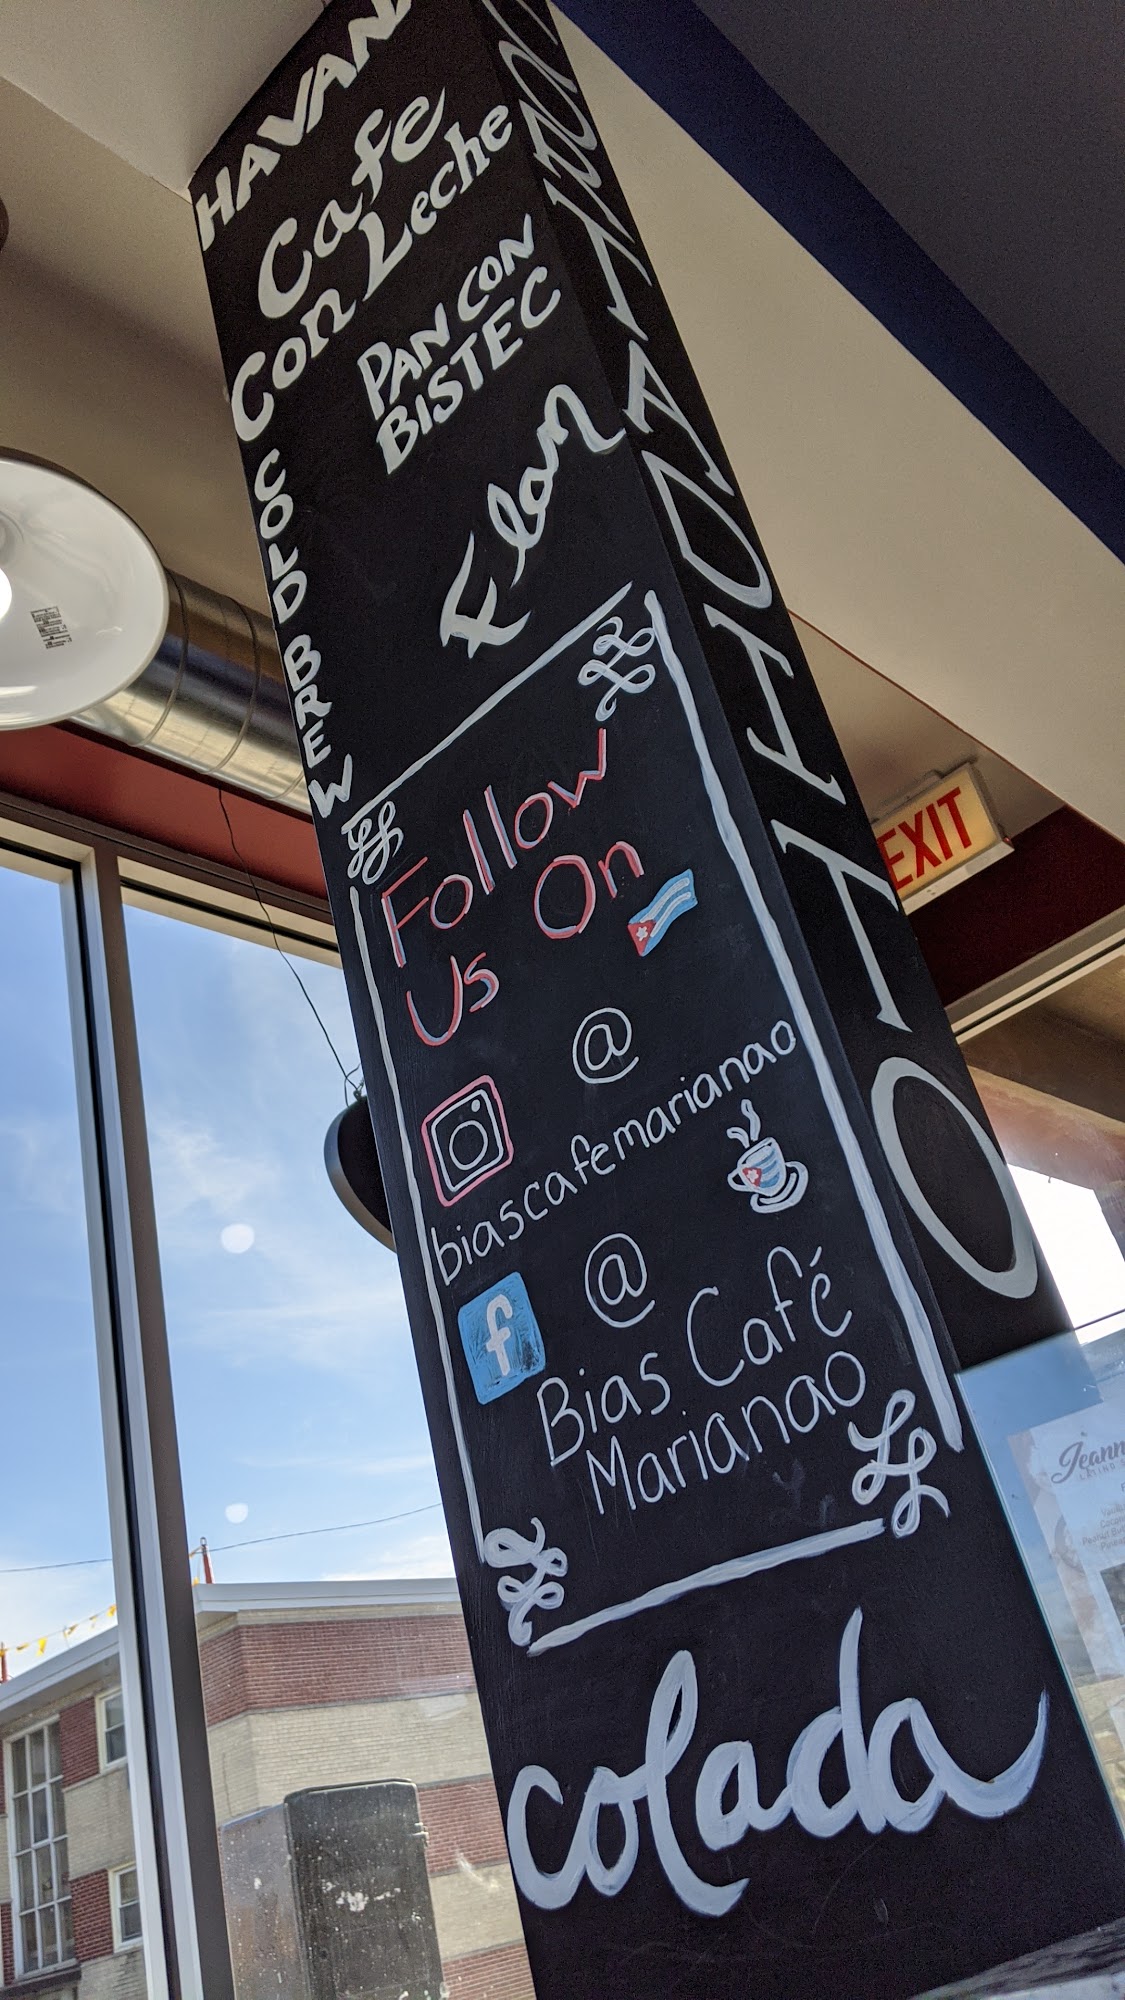 HAVAN
Cafe
Con Leche
PAN CON
BISTEC
Flan
COLD BREW
CORTADITO
EXIT
Follow
Us On
@
biascafemarianao
f
@
Bias Café
Marianao
colada
Jeann